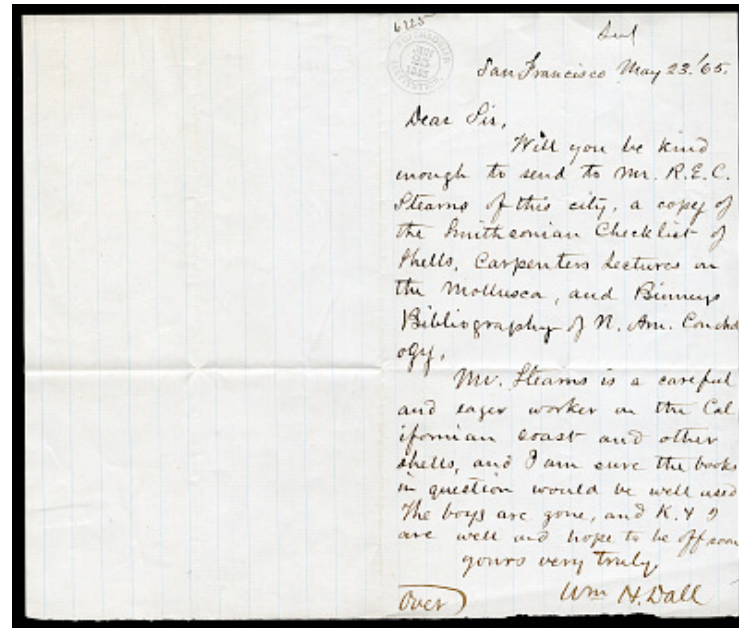 6225
San Francisco May 23. '65.
Dear Sir,
Will you be kind
enough to send to Mr. R.E.C.
Stearns of this city, a copy of
the Smithsonian Checklist of
Shells, Carpenters Lectures on
the Mollusca, and Binneys
Bibliography of N. Am. Conchol
ogy.
Mr. Stearns is a careful
and eager worker on the Cal
ifornian coast and other
shells, and I am sure the books
in question would be well used
The boys are gone, and K. & I
are well and hope to be off soon
yours very truly
Wm H. Dall
Over